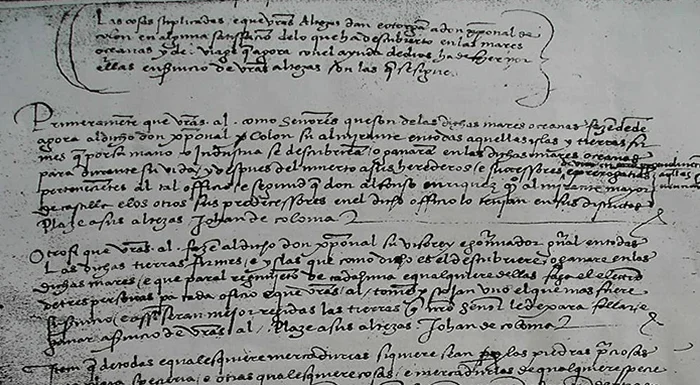 Las cosas suplicadas, e que vras Altezas dan e otorgan a don xpoual de
colon en alguna satisfaçion de lo que ha descubierto en las mares
oceanas y del viage que agora con el ayuda de dios ha de fazer por
ellas en seruicio de vras altezas son las que se sigue.
Primeramete que vras al. como Senores que son de las dichas mares oceanas fazen dende
agora al dicho don xpoual Colon su almirante en todas aquellas yslas y tierras fir
mes que por su mano o Industria se descubrira o ganara en las dichas mares oceanas
para durante su vida, y despues del muerto a sus herederos e successores
pertenecietes al tal officio, e segund que don alfonso enrriquez, q almirante mayor
de castilla e los otros sus predecessores en el dicho officio lo tenian en sus districtos
Plaze a sus altezas Johan de coloma
Otrosi que vras. al. fazen al dicho don xpoual su visorey e gouernador gnal en todas
las dichas tierras firmes, e yslas que como dicho es el descubriere o ganare en las
dichas mares, e que paral regimieto de cada huna e qualquiere dellas faga el eleccio
de tres personas pa cada oficio e que vras. al. tomen y scojan uno el que mas fuere
su seruicio e assi seran mejor regidas las tierras q nro Senor le dexara fallar, e
ganar a seruicio de vras. al. Plaze a sus altezas Johan de coloma
Item q de todas e qualesquiere mercadurias siquiere sean perlas piedras preciosas
oro plata speciería e otras qualesquiere cosas e mercadurias de qualquiere specie